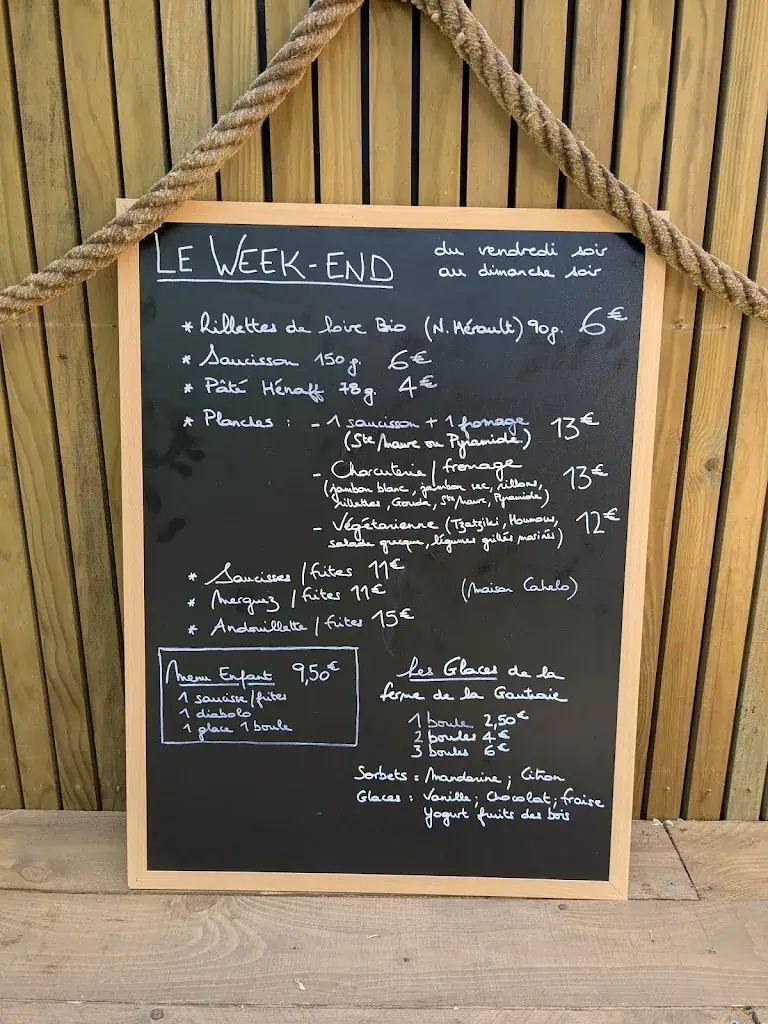 LE WEEK-END
du vendredi soir
au dimanche soir
* Rillettes de Loire Bio (N. Hérault) 90g. 6€
* Saucisson 150g. 6€
* Pâté Hénaff 78g. 4€
* Planches : - 1 saucisson + 1 fromage 13€
(Ste/maure ou Pyramide)
- Charcuterie / fromage 13€
(jambon blanc, jambon sec, rillons,
rillettes, Gouda, Ste/maure, Pyramide)
- Végétarienne (Tzatziki, Houmous, 12€
salade grecque, légumes grillés marinés)
* Saucisses / frites 11€
* Merguez / frites 11€ (Maison Cahelo)
* Andouillette / frites 15€
Menu Enfant 9,50€
1 saucisse/frites
1 diabolo
1 glace 1 boule
Les Glaces de la
ferme de la Gautraie
1 boule 2,50€
2 boules 4€
3 boules 6€
Sorbets : Mandarine ; Citron
Glaces : Vanille ; Chocolat ; fraise
Yogurt fruits des bois